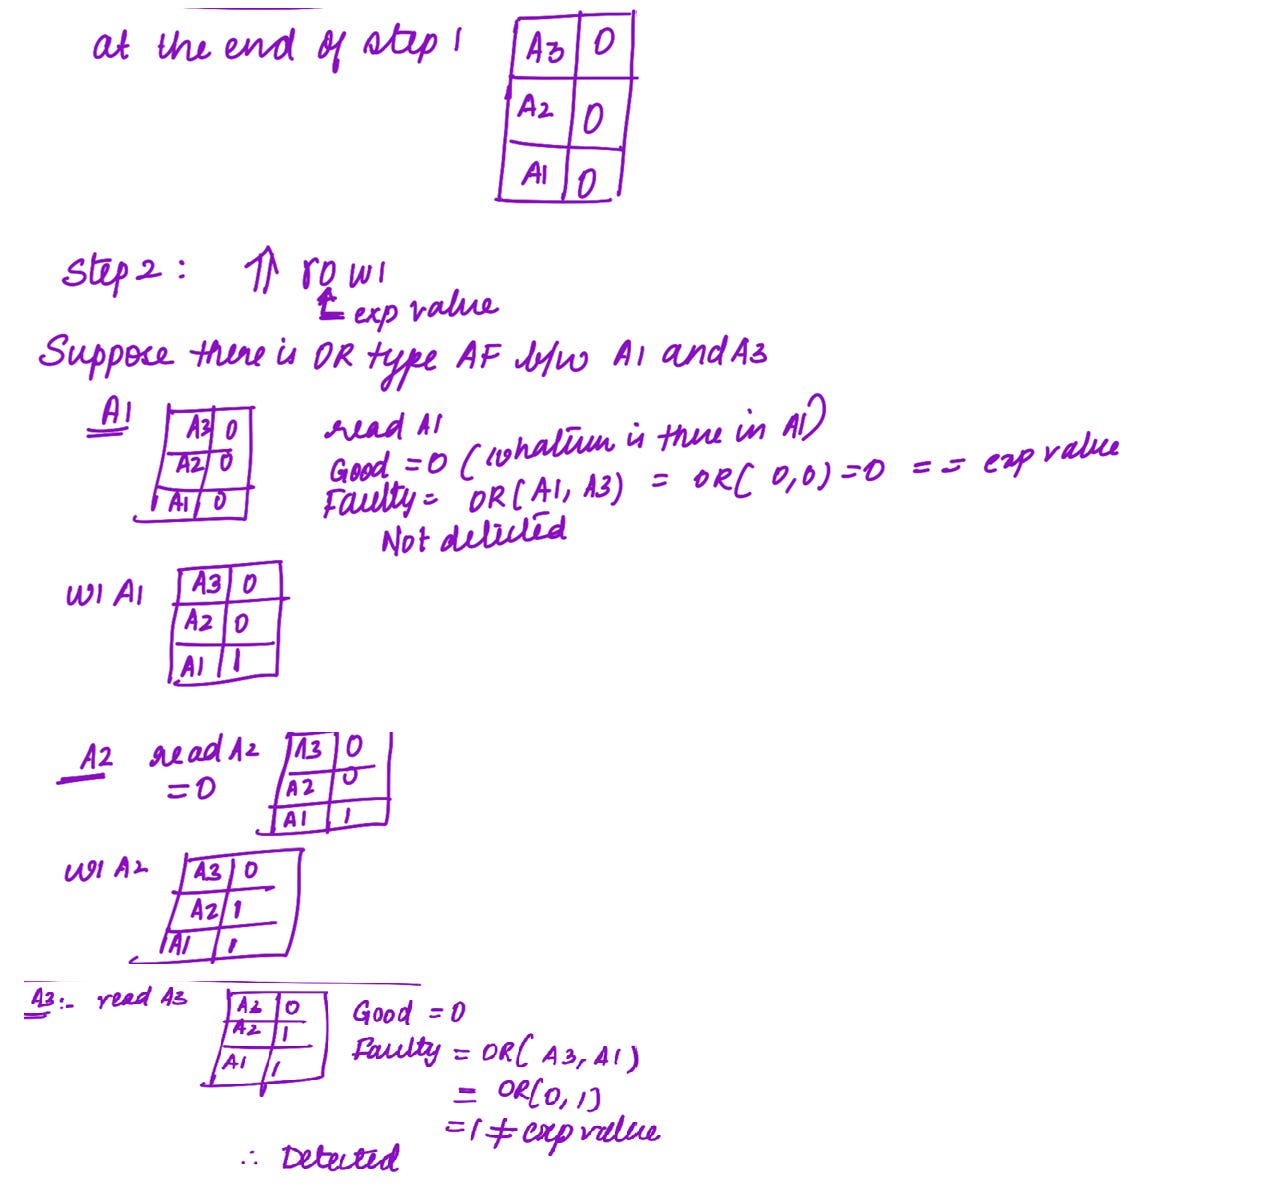 at the end of step 1
A3 0
A2 0
A1 0
Step 2 : ⇑ r0 w1
exp value
Suppose there is OR type AF b/w A1 and A3
A1
A3 0
A2 0
A1 0
read A1
Good = 0 (whatever is there in A1)
Faulty = OR( A1, A3) = OR( 0,0) = 0 == exp value
Not detected
W1 A1
A3 0
A2 0
A1 1
A2 read A2
= 0
A3 0
A2 0
A1 1
W1 A2
A3 0
A2 1
A1 1
A3:- read A3
A3 0
A2 1
A1 1
Good = 0
Faulty = OR( A3, A1)
= OR(0, 1)
= 1 ≠ exp value
∴ Detected